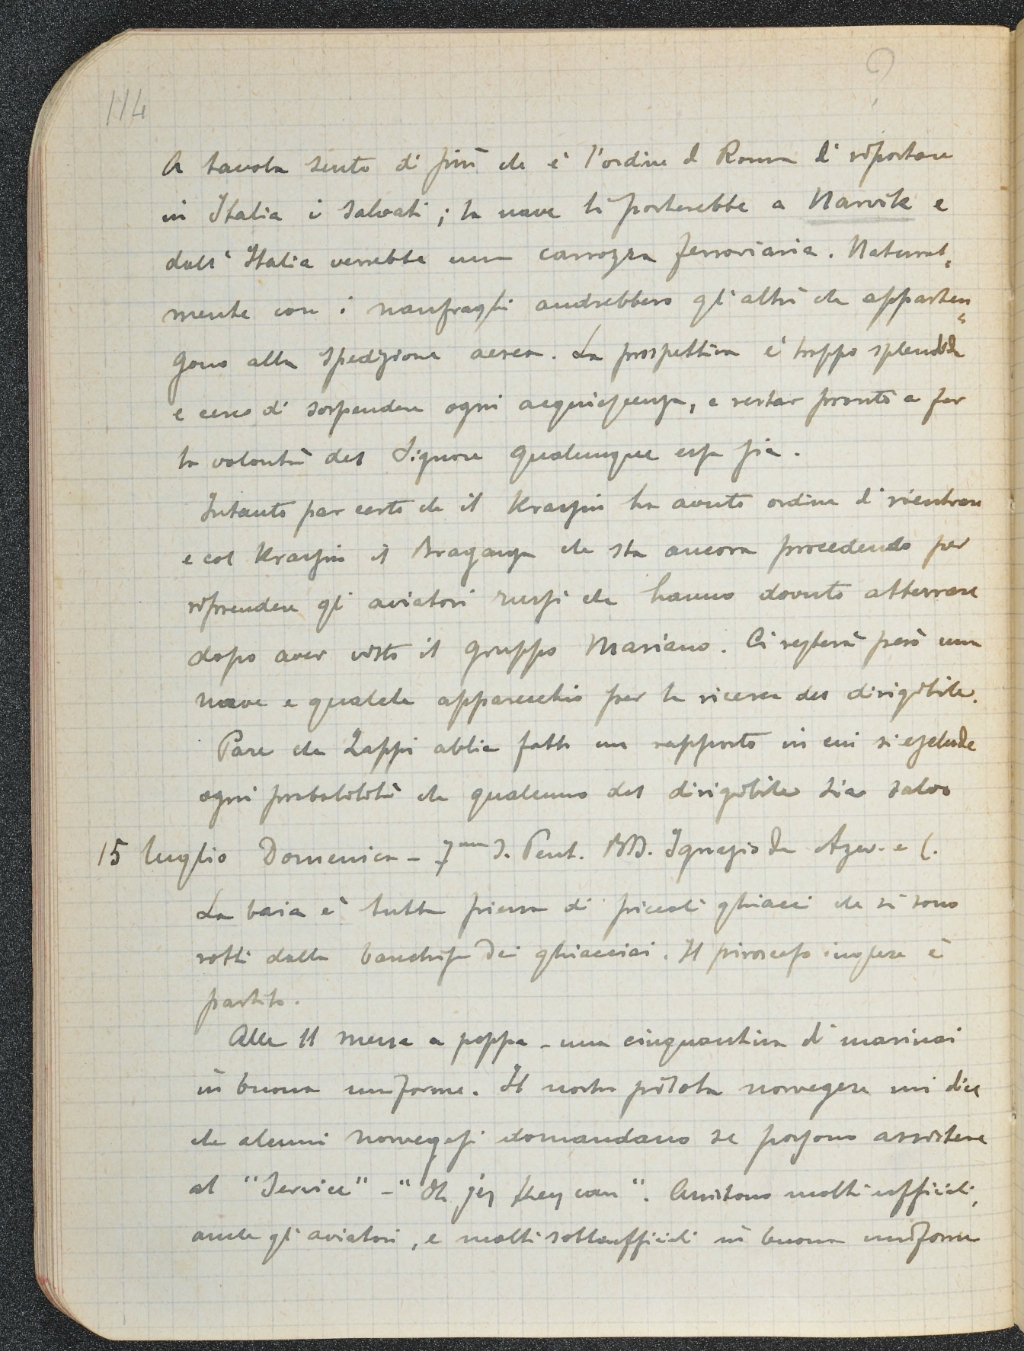 114
?
A tavola sento di più che è l'ordine d Roma di riportare
in Italia i salvati ; la nave li porterebbe a Narvik e
dall' Italia verrebbe una carrozza ferroviaria. Natural-
mente con i naufraghi andrebbero gl'altri che apparten
gono alla spedizione aerea. La prospettiva è troppo splendida
e cerco di sospendere ogni acquiescenza, e restar pronto a far
la volontà del Signore qualunque essa sia.
Intanto par certo che il Krassin ha avuto ordine di rientrare
e col Krassin il Braganza che sta ancora procedendo per
riprendere gli aviatori russi che hanno dovuto atterrare
dopo aver visto il gruppo Mariano. Ci resterà però una
nave e qualche apparecchio per la ricerca del dirigibile.
Pare che Zappi abbia fatto un rapporto in cui si esclude
ogni probabilità che qualcuno del dirigibile sia salvo
15 luglio Domenica - 7ma D. Pent. BB. Ignazio da Azev. e C.
La baia è tutta piena di piccoli ghiacci che si sono
rotti dalla banchisa dei ghiacciai. Il piroscafo inglese è
partito.
Alle 11 messa a poppa - una cinquantina di marinai
in buona uniforme. Il nostro pilota norvegese mi dice
che alcuni norvegesi domandano se possono assistere
al "Service" - "Oh yes they can". Assistono molti ufficiali,
anche gl'aviatori, e molti sottoufficiali in buona uniforme